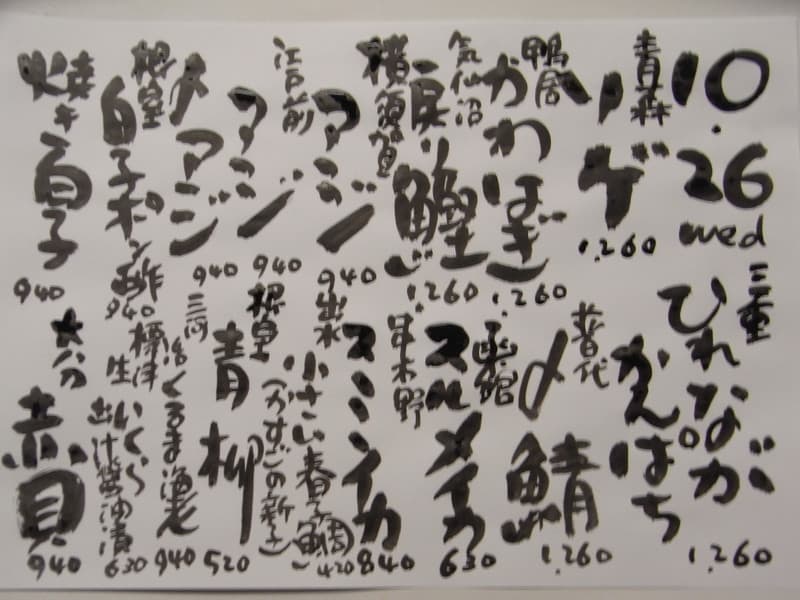 10.26
wed
青森
ソゲ
1,260
鴨居
かわはぎ
1,260
気仙沼
戻り鰹
1,260
横須賀
アジ
940
江戸前
アジ
940
大アジ
940
根室
白子ポン酢
940
焼き白子
940
三重
ひれなが
かんぱち
1,260
普代
〆鯖
1,260
函館
スルメイカ
630
串木野
スミイカ
840
出水
小さい春子鯛
(かすごの新子)
420
根室
青柳
520
三河
活くるま海老
940
標津
生いくら
出汁醤油漬
630
大分
赤貝
940